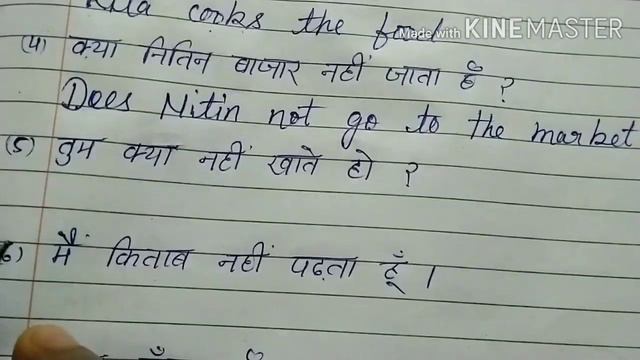 cooks the food
Made with KINEMASTER
(4) क्या नितिन बाजार नहीं जाता हैं ?
Does Nitin not go to the market
(5) तुम क्या नहीं खाते हो ?
6) मैं किताब नहीं पढ़ता हूँ ।